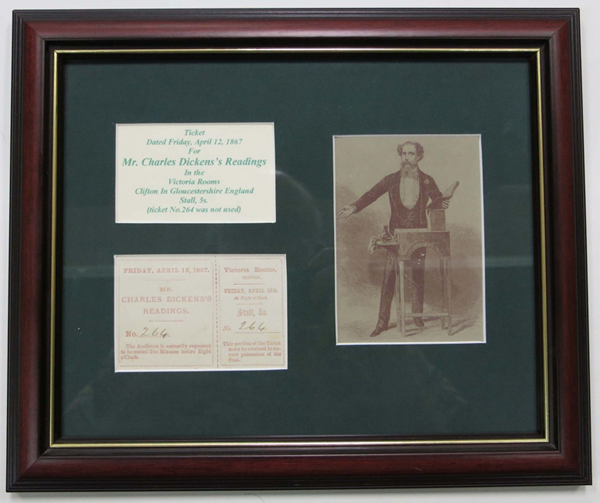 Ticket
Dated Friday, April 12, 1867
For
Mr. Charles Dickens's Readings
In the
Victoria Rooms
Clifton In Gloucestershire England
Stall, 5s.
(ticket No.264 was not used)
FRIDAY, APRIL 12, 1867.
MR.
CHARLES DICKENS'S
READINGS.
No. 264
The Audience is earnestly requested
to be seated Ten Minutes before Eight
o'Clock.
Victoria Rooms,
FRIDAY, APRIL
At Eight o'Clock.
Stall, 5s.
No. 264
This portion of the Ticket